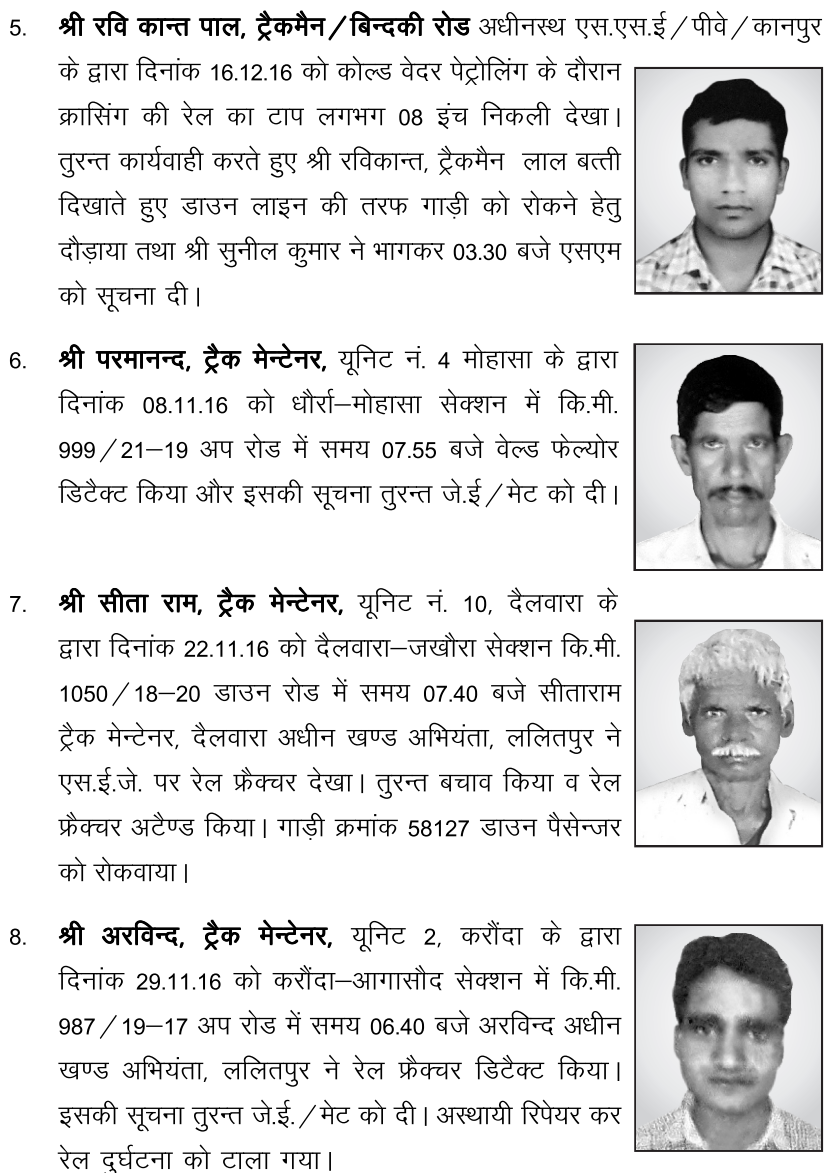 5. श्री रवि कान्त पाल, ट्रैकमैन/बिन्दकी रोड अधीनस्थ एस.एस.ई/पीवे/कानपुर
के द्वारा दिनांक 16.12.16 को कोल्ड वेदर पेट्रोलिंग के दौरान
क्रासिंग की रेल का टाप लगभग 08 इंच निकली देखा।
तुरन्त कार्यवाही करते हुए श्री रविकान्त, ट्रैकमैन लाल बत्ती
दिखाते हुए डाउन लाइन की तरफ गाड़ी को रोकने हेतु
दौड़ाया तथा श्री सुनील कुमार ने भागकर 03.30 बजे एसएम
को सूचना दी।
6. श्री परमानन्द, ट्रैक मेन्टेनर, यूनिट नं. 4 मोहासा के द्वारा
दिनांक 08.11.16 को धौर्रा–मोहासा सेक्शन में कि.मी.
999/21–19 अप रोड में समय 07.55 बजे वेल्ड फेल्योर
डिटैक्ट किया और इसकी सूचना तुरन्त जे.ई/मेट को दी।
7. श्री सीता राम, ट्रैक मेन्टेनर, यूनिट नं. 10, दैलवारा के
द्वारा दिनांक 22.11.16 को दैलवारा–जखौरा सेक्शन कि.मी.
1050/18–20 डाउन रोड में समय 07.40 बजे सीताराम
ट्रैक मेन्टेनर, दैलवारा अधीन खण्ड अभियंता, ललितपुर ने
एस.ई.जे. पर रेल फ्रैक्चर देखा। तुरन्त बचाव किया व रेल
फ्रैक्चर अटैण्ड किया। गाड़ी क्रमांक 58127 डाउन पैसेन्जर
को रोकवाया।
8. श्री अरविन्द, ट्रैक मेन्टेनर, यूनिट 2, करौंदा के द्वारा
दिनांक 29.11.16 को करौंदा–आगासौद सेक्शन में कि.मी.
987/19–17 अप रोड में समय 06.40 बजे अरविन्द अधीन
खण्ड अभियंता, ललितपुर ने रेल फ्रैक्चर डिटैक्ट किया।
इसकी सूचना तुरन्त जे.ई./मेट को दी। अस्थायी रिपेयर कर
रेल दुर्घटना को टाला गया।